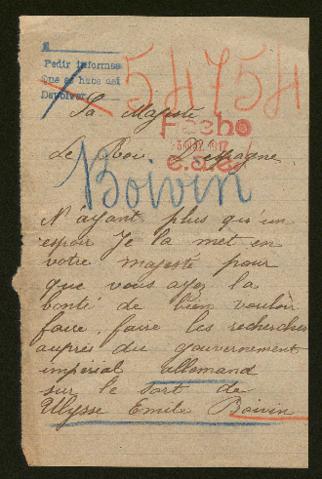 Pedir informes
Que se hace así
Devolver
54754
Sa Majesté
Fecho
Le Roi D'espagne
Boivin
N'ayant plus qu'un
espoir Je la met en
votre majesté pour
que vous ayez la
bonté de bien vouloir
faire faire les recherches
auprès du gouvernement
impérial allemand
sur le sort de
Ulysse Emile Boivin